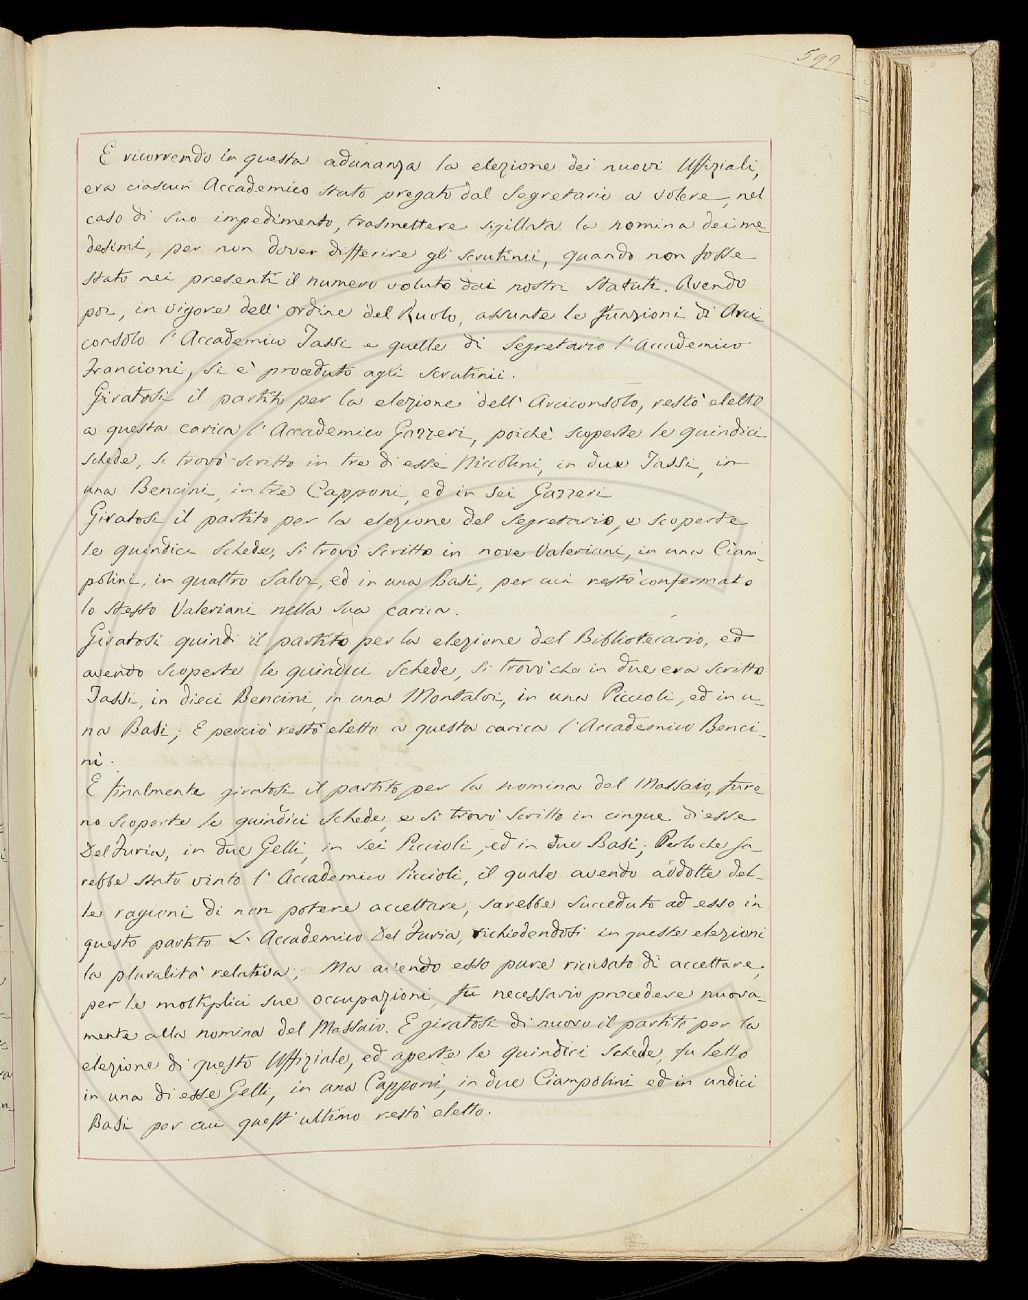 599
E ricorrendo in questa adunanza la elezione dei nuovi Uffiziali,
era ciascun Accademico stato pregato dal Segretario a volere, nel
caso di suo impedimento, trasmettere sigillata la nomina dei me-
desimi, per non dover differire gli scrutinii, quando non fosse
stato nei presenti il numero voluto dai nostri Statuti. Avendo
poi, in vigore dell' ordine del Ruolo, assunte le funzioni di Arci
consolo l'Accademico Tassi e quelle di Segretario l'Accademico
Francioni, si è proceduto agli scrutinii.
Giratosi il partito per la elezione dell' Arciconsolo, restò eletto
a questa carica l'Accademico Gazzeri, poichè scoperte le quindici
schede, si trovò scritto in tre di esse Niccolini, in due Tassi, in
una Bencini, in tre Capponi, ed in sei Gazzeri
Giratosi il partito per la elezione del Segretario, e scoperte
le quindici Schede, si trovò scritto in nove Valeriani, in una Ciam-
polini, in quattro Salvi, ed in una Basi, per cui restò confermato
lo stesso Valeriani nella sua carica.
Giratosi quindi il partito per la elezione del Bibliotecario, ed
avendo scoperte le quindici schede, si trovò che in due era scritto
Tassi, in dieci Bencini, in una Montalvi, in una Piccioli, ed in u-
na Basi; E perciò restò eletto a questa carica l'Accademico Benci-
ni.
E finalmente giratosi il partito per la nomina del Massaio, furo
no scoperte le quindici schede, e si trovò scritto in cinque di esse
Del Furia, in due Gelli, in sei Piccioli, ed in due Basi; Perloche sa-
rebbe stato vinto l' Accademico Piccioli, il quale avendo addotte del-
le ragioni di non potere accettare, sarebbe succeduto ad esso in
questo partito L' Accademico Del Furia, richiedendosi in queste elezioni
la pluralità relativa; Ma avendo esso pure ricusato di accettare,
per le moltiplici sue occupazioni, fu necessario procedere nuova-
mente alla nomina del Massaio. E giratosi di nuovo il partito per la
elezione di questo Uffiziale, ed aperte le quindici schede, fu letto
in una di esse Gelli, in una Capponi, in due Ciampolini ed in undici
Basi per cui quest' ultimo restò eletto.